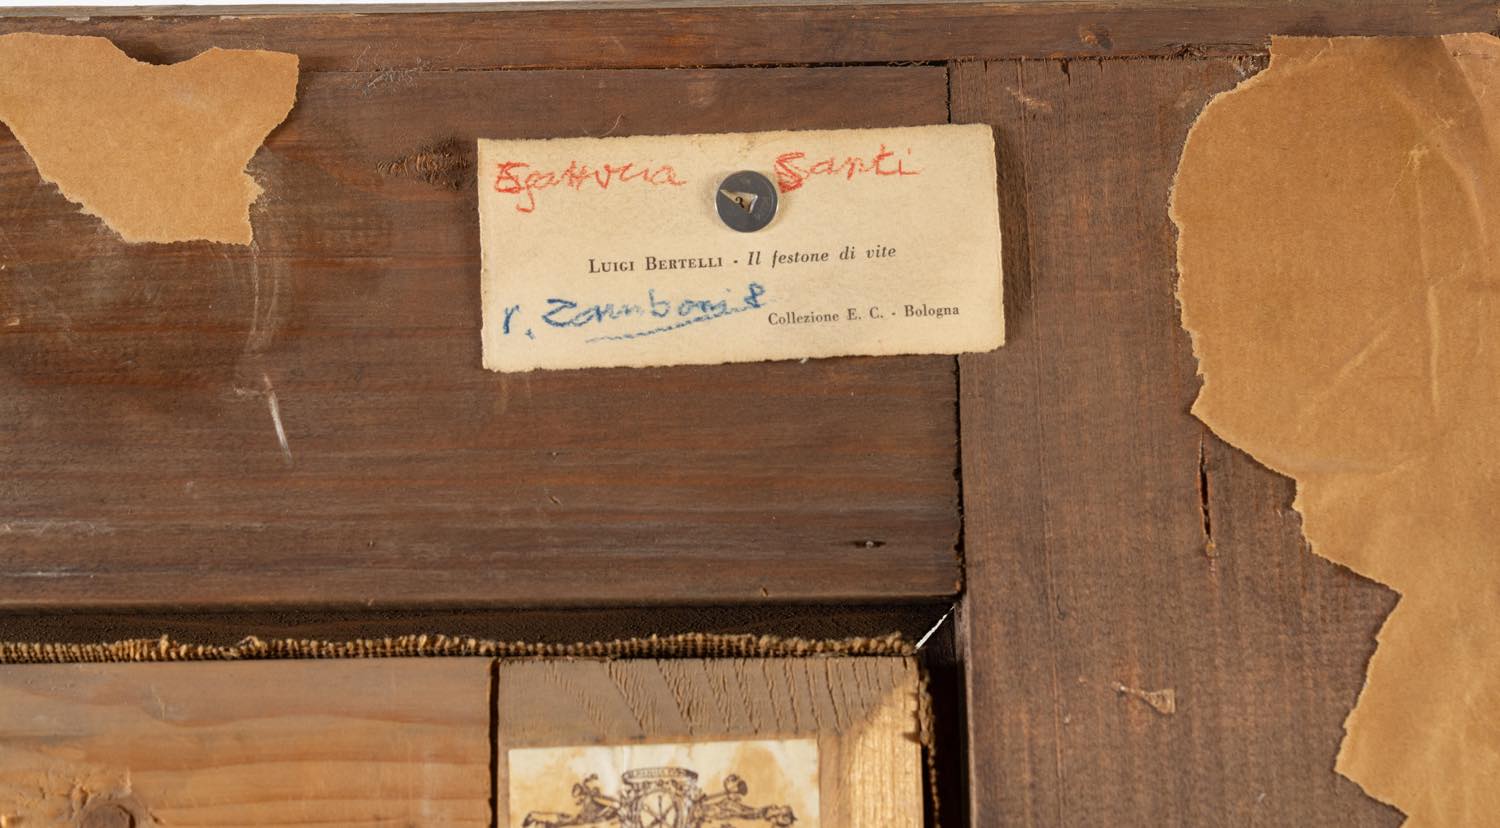 Sgattucia Santi
LUIGI BERTELLI - Il festone di vite
r. Zamboni 8
Collezione E. C. - Bologna